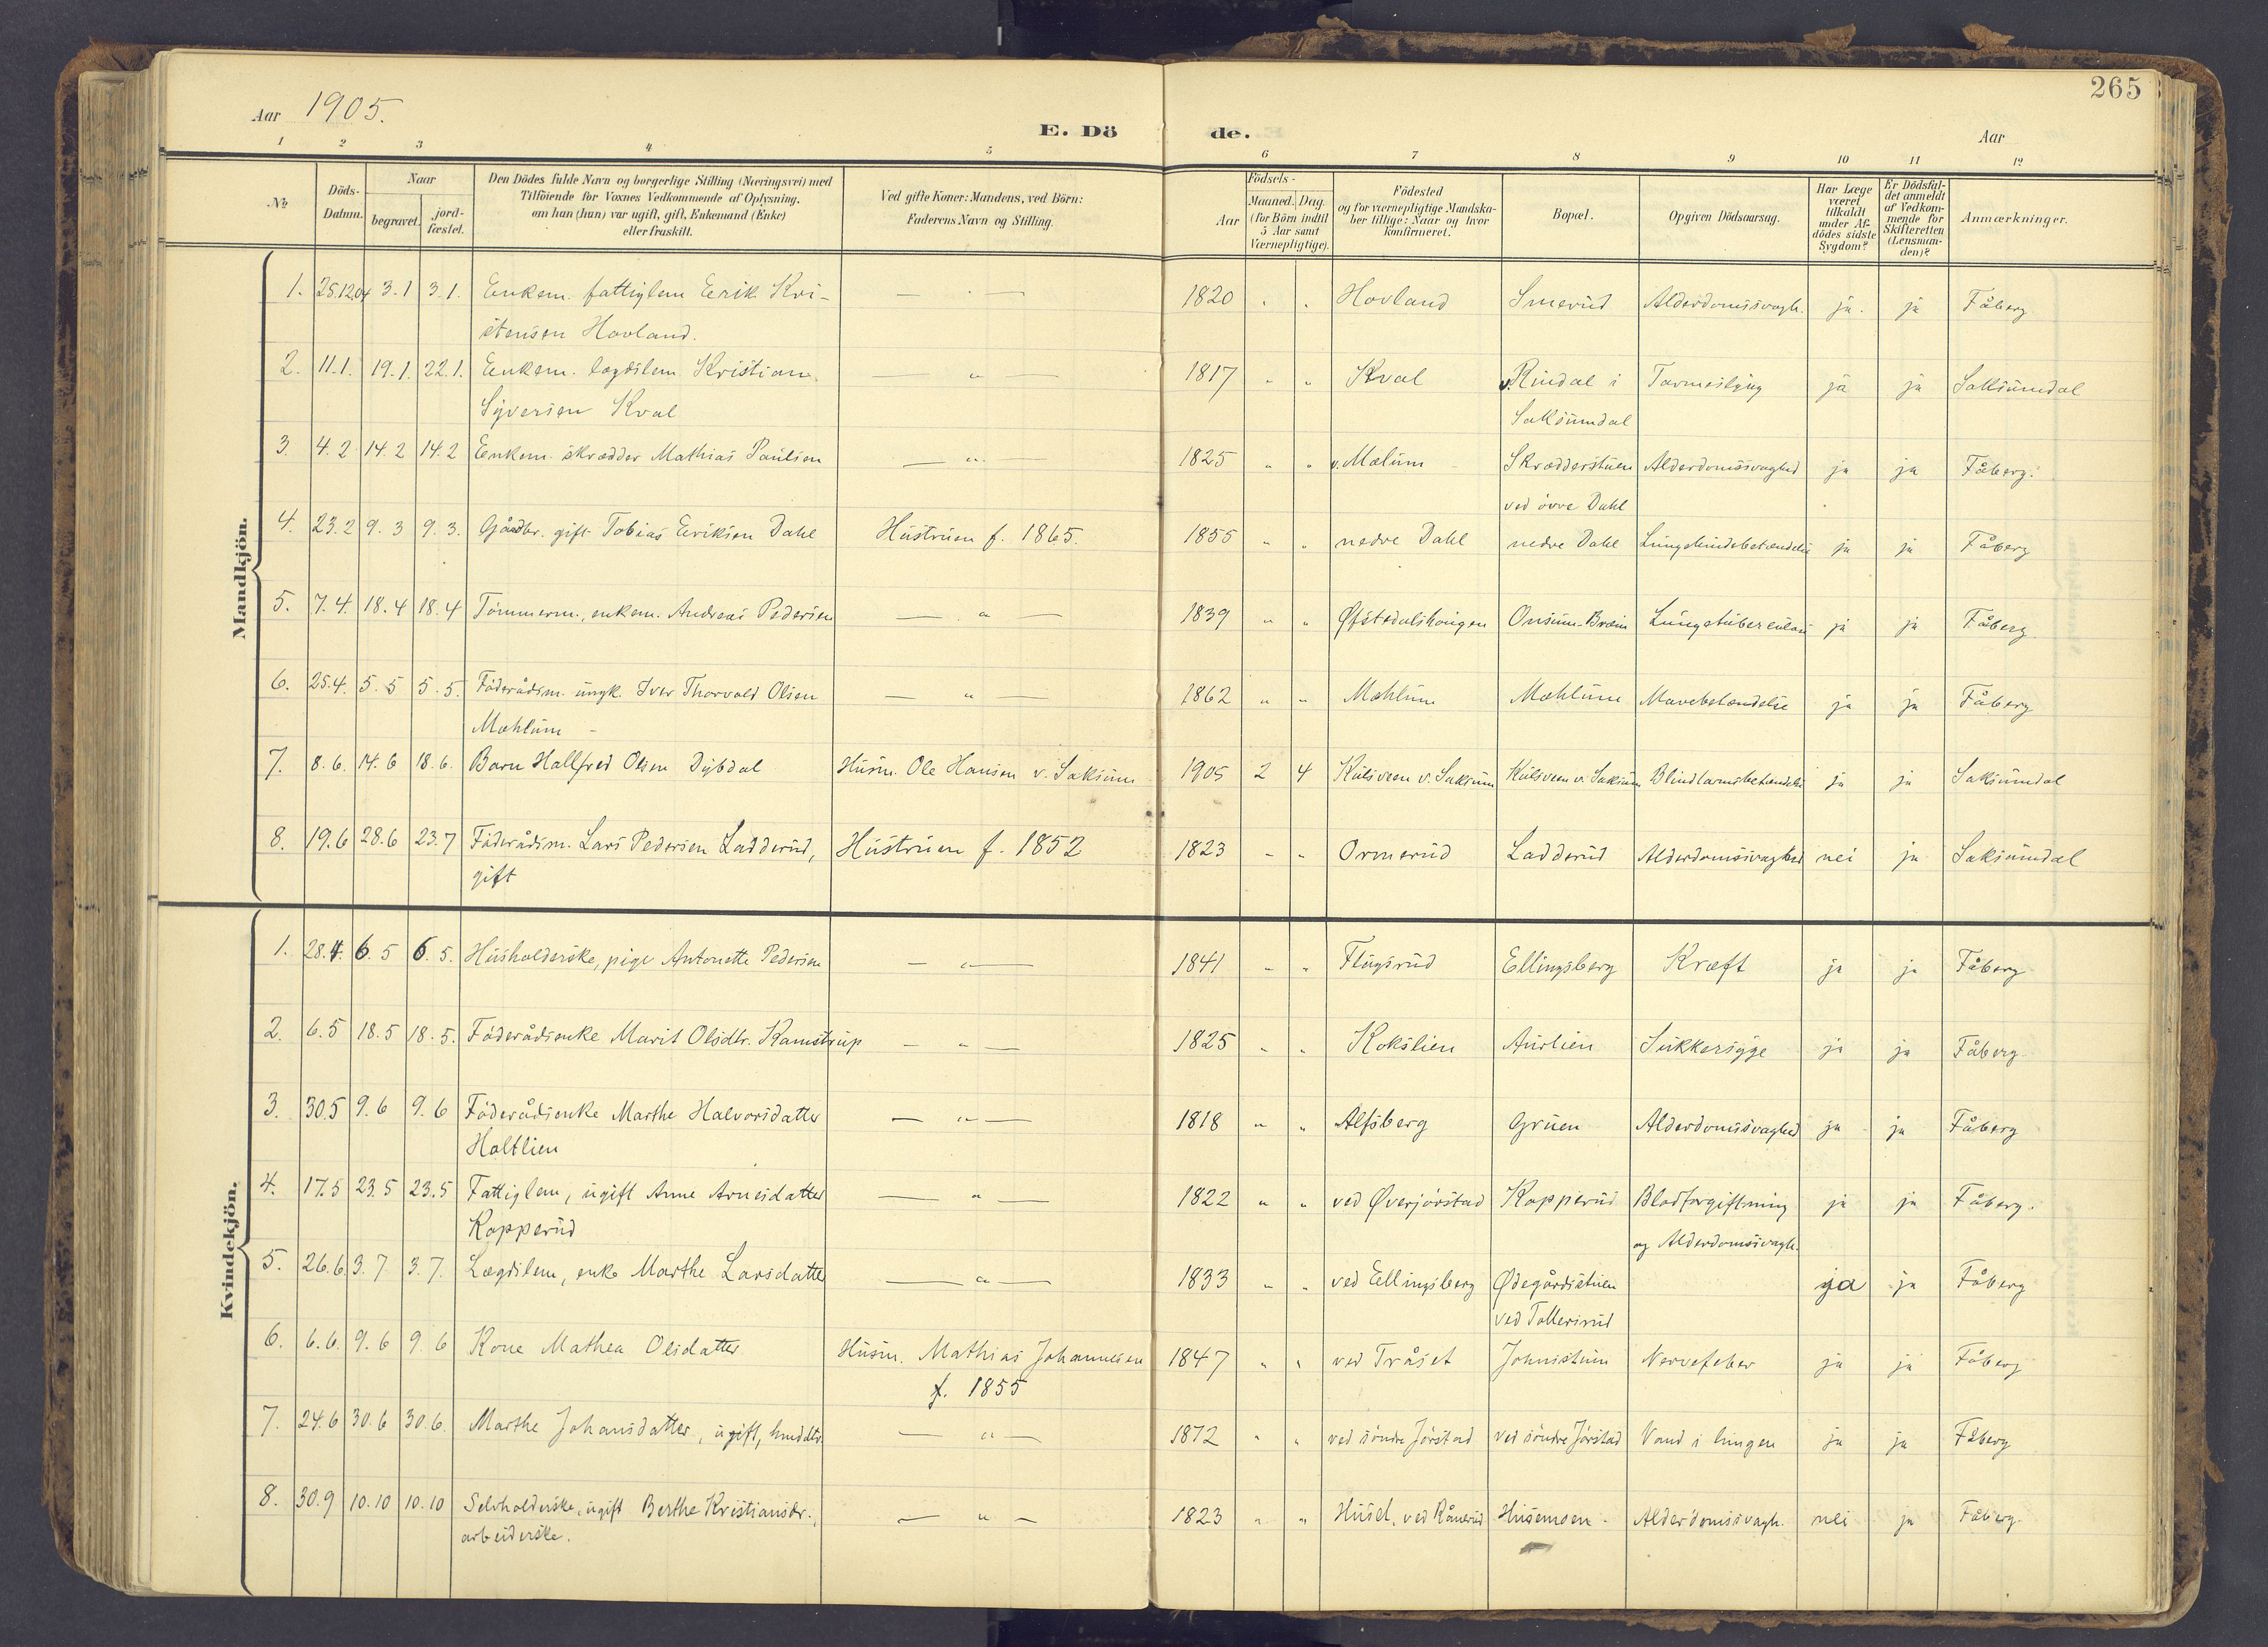 265
Aar 1905.
E. Dö de.
Aar
1 2 3 4 5 6 7 8 9 10 11 12
No
Döds-Datum.
Naar
begravet.
jord-fæstet.
Den Dödes fulde Navn og borgerlige Stilling (Næringsvei) med
Tilföiende for Voxnes Vedkommende af Oplysning,
om han (hun) var ugift, gift, Enkemand (Enke)
eller fraskilt.
Ved gifte Koner: Mandens, ved Börn:
Faderens Navn og Stilling.
Födsels-
Aar
Maaned. Dag.
(for Börn indtil
5 Aar samt
Værnepligtige).
Födested
og for værnepligtige Mandska-
ber tillige: Naar og hvor
konfirmeret.
Bopæl.
Opgiven Dödsaarsag.
Har Læge
været
tilkaldt
under Af-
dödes sidste
Sygdom?
Er Dödsfal-
det anmeldt
af Vedkom-
mende for
Skifteretten
(Lensman-
den)?
Anmærkninger.
Mandkjön.
1. 25.12.04 3.1 3.1. Enkem. fattiglem Erik Kri- — . — 1820 " " Hovland Smerud Alderdomssvagh. ja. ja Fåberg
stensen Hovland.
2. 11.1. 19.1. 22.1. Enkem. lægdslem Kristian — " — 1817 " " Kval v. Rindal i Tarmeslyng ja ja Saksumdal
Syversen Kval Saksumdal
3. 4.2 14.2 14.2 Enkem. skrædder Mathias Paulsen — " — 1825 " " v. Mælum Skrædderstuen Alderdomssvaghed ja ja Fåberg.
ved övre Dahl
4. 23.2 9.3 9.3. Gårdbr. gift Tobias Eriksen Dahl Hustruen f. 1865. 1855 " " nedre Dahl nedre Dahl Lungehindebetændelse ja ja Fåberg
5. 7.4. 18.4 18.4 Tömmerm., enkem. Andreas Pedersen — " — 1839 " " Øfstedalshaugen Onsum-Bræin Lungetuberculose ja ja Fåberg
6. 25.4. 5.5 5.5. Föderådsm. ungk. Iver Thorvald Olsen — " — 1862 " " Mæhlum Mæhlum Mavebetændelse ja ja Fåberg
Mæhlum -
7. 8.6. 14.6 18.6. Barn Hallfred Olsen Dybdal Husm. Ole Hansen v. Saksum 1905 2 4 Kulsveen v. Saksum Kulsveen v. Saksum Blindtarmsbetændelse ja ja Saksumdal
8. 19.6 28.6 23.7 Föderådsm. Lars Pedersen Ladderud, Hustruen f. 1852 1823 " " Ormerud Ladderud Alderdomssvaghed nei ja Saksumdal
gift
Kvindekjön.
1. 28.4. 6.5 6.5. Husholderske, pige Antonette Pedersen — " — 1841 " " Flugsrud Ellingsberg Kræft ja ja Fåberg
2. 6.5 18.5 18.5. Föderådsenke Marit Olsdtr. Kamstrup — " — 1825 " " Kokslien Aurlien Sukkersyge ja ja Fåberg
3. 30.5 9.6 9.6 Föderådsenke Marthe Halvorsdatter — " — 1818 " " Alfsberg Gruen Alderdomssvaghed ja ja Fåberg
Holtlien
4. 17.5 23.5 23.5 Fattiglem, ugift Anne Arnesdatter — " — 1822 " " ved Øverjörstad Kopperud Blodforgiftning ja ja Fåberg.
Kopperud og Alderdomssvagh.
5. 26.6 3.7 3.7. Lægdslem, enke Marthe Larsdatter — " — 1833 " " ved Ellingsberg Ødegårdsstuen ja ja Fåberg
ved Tollersrud
6. 6.6. 9.6 9.6 Kone Mathea Olsdatter Husm. Mathias Johannesen 1847 " " ved Tråset Johnsstuen Nervefeber ja ja Fåberg
f. 1855
7. 24.6 30.6 30.6. Marthe Johansdatter, ugift, husdtr. — " — 1872 " " ved söndre Jörstad ved söndre Jörstad Vand i lungen ja ja Fåberg
8. 30.9 10.10 10.10 Selvholderske, ugift Berthe Kristiansdr., — " — 1823 " " Huset, ved Rånerud Husemoen. Alderdomssvagh. nei ja Fåberg.
arbeiderske.